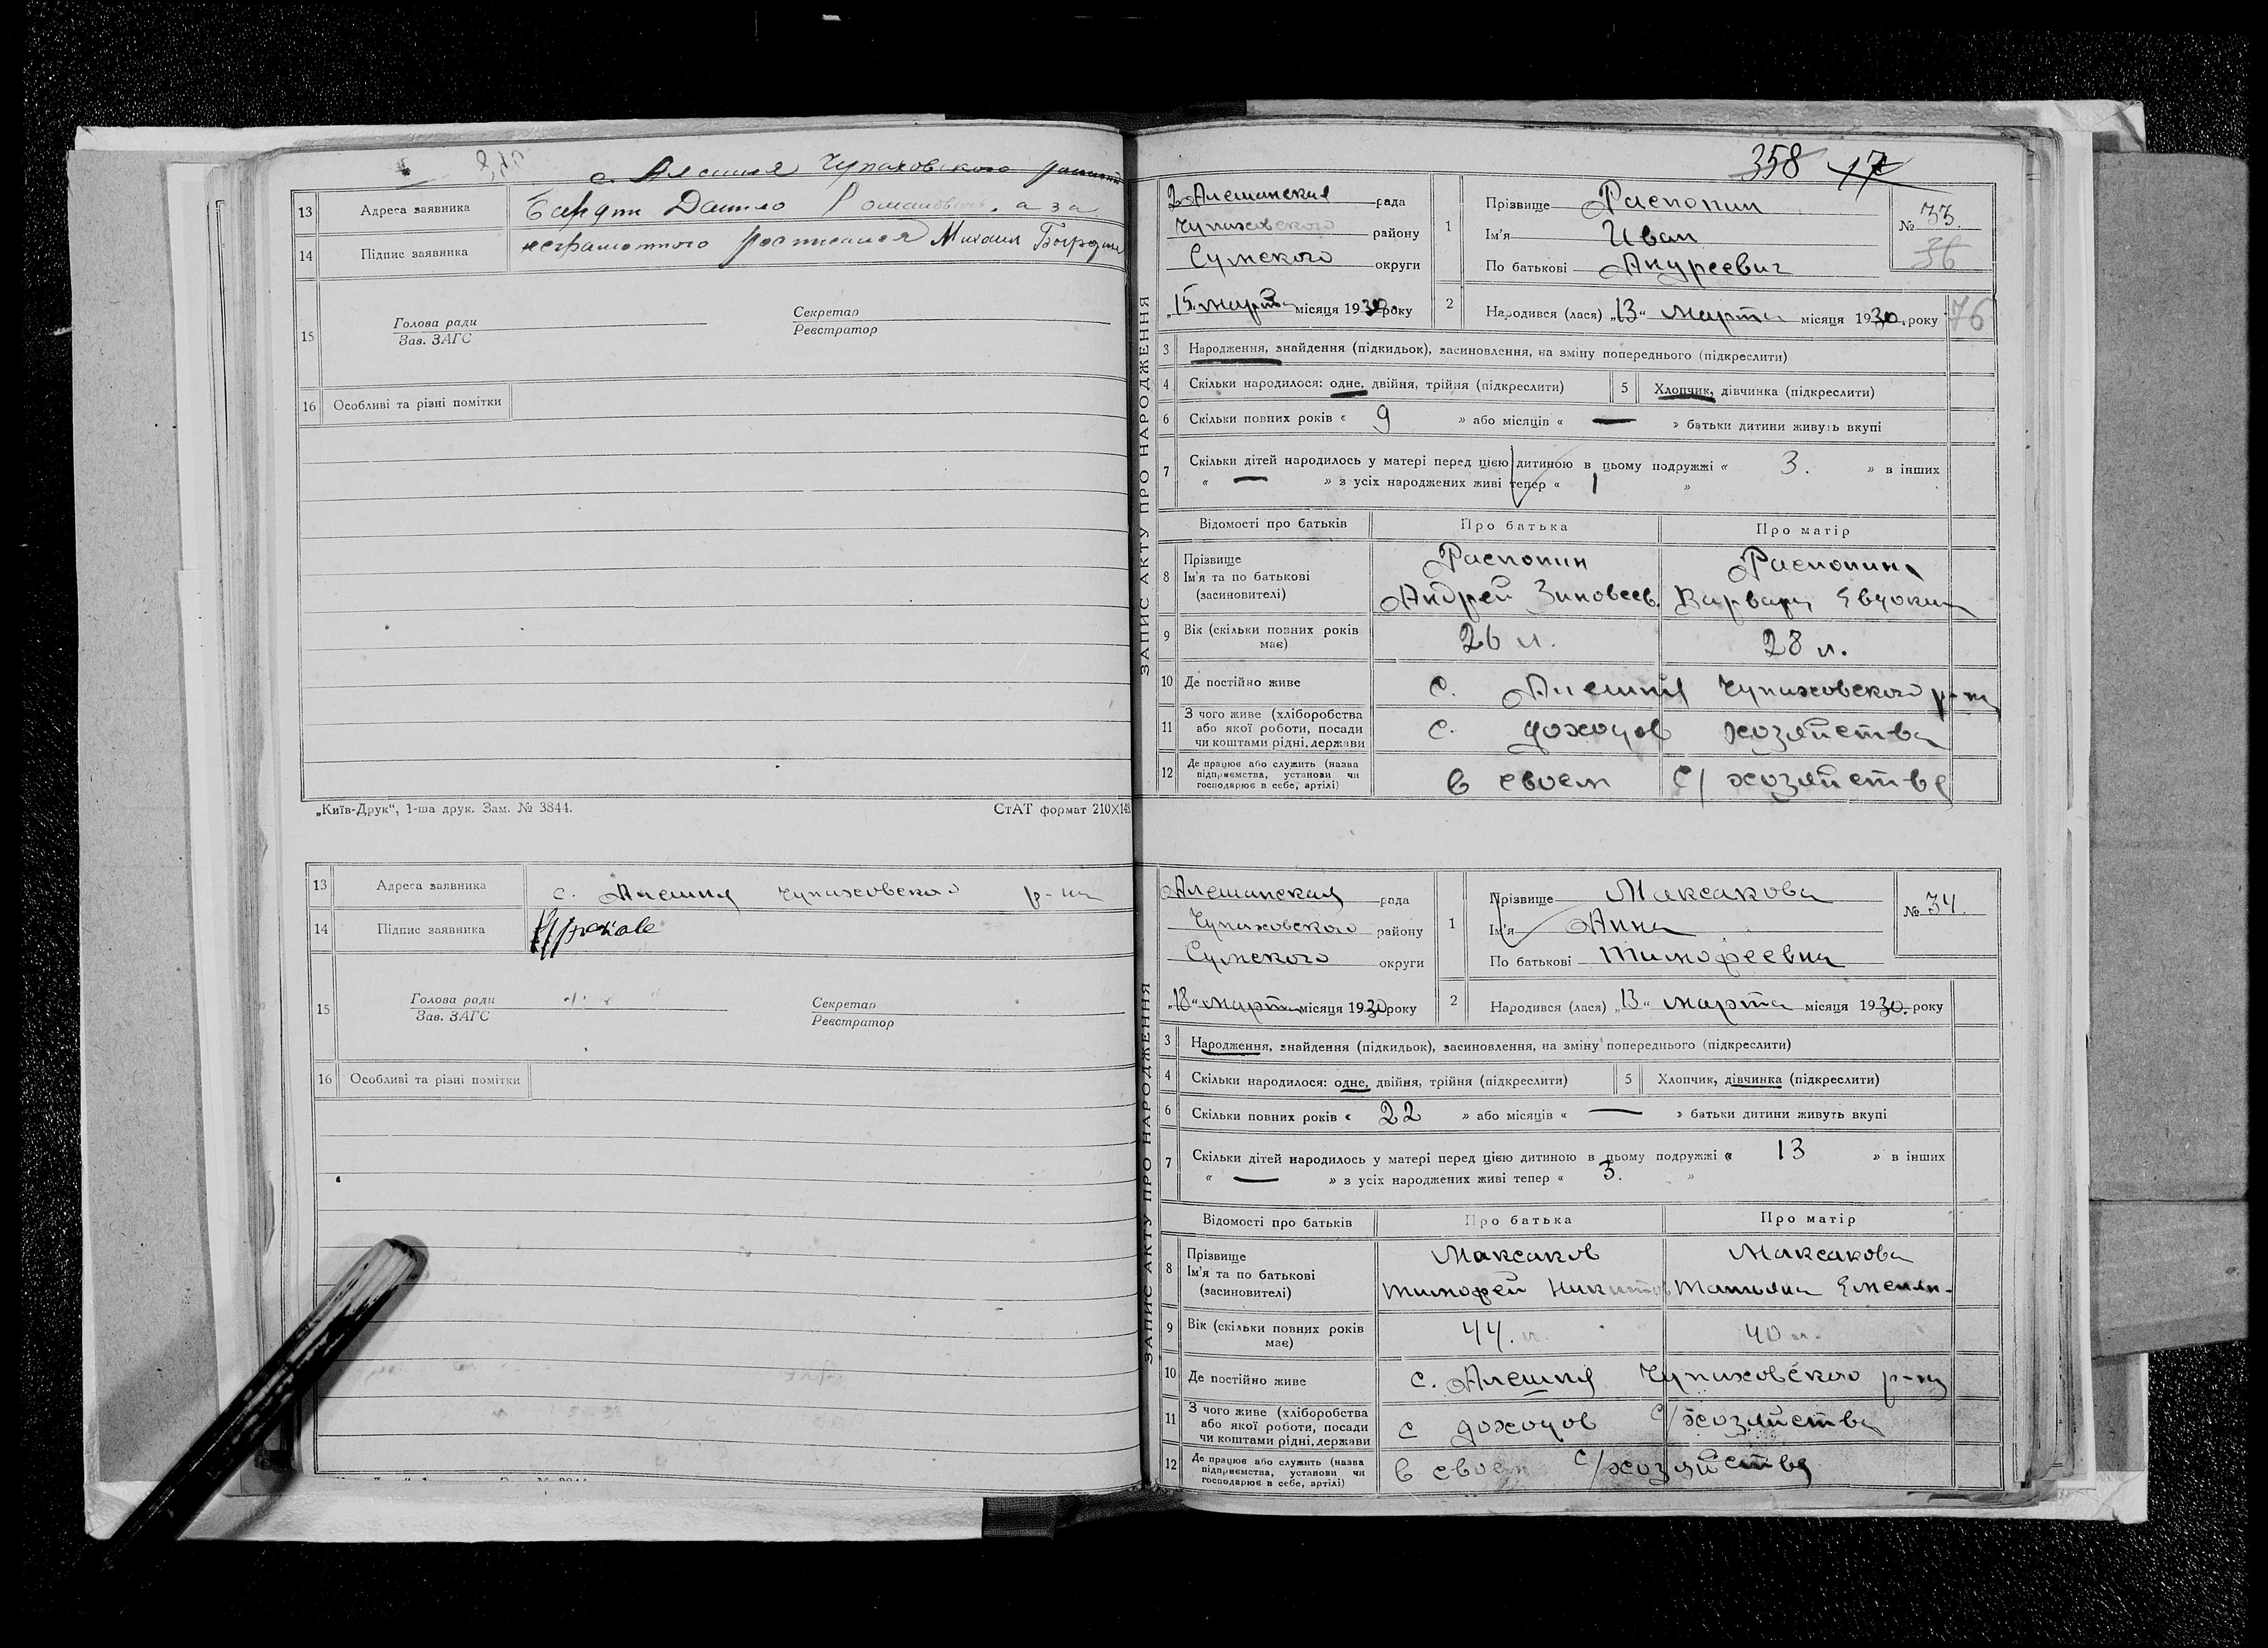 с. Алешня Чупаховского
13 Адреса заявника
Данило
14 Підпис заявника
неграмотного расписался Михаил
15 Голова ради
Зав. ЗАГС
Секретар
Реєстратор
16 Особливі та різні помітки
„Київ-Друк“, 1-ша друк. Зам. № 3844.
СтАТ формат 210X148
13 Адреса заявника с. Алешня Чупаховского р-на
14 Підпис заявника
15 Голова ради
Зав. ЗАГС
Секретар
Реєстратор
16 Особливі та різні помітки
358 17
ЗАПИС АКТУ ПРО НАРОДЖЕННЯ
Алешанская рада
Чупаховского району
Сумского округи
„15 марта місяця 1930 року
1 Прізвище Распопин
Ім'я Иван
По батькові Андреевич
№ 33.
36
2 Народився (лася) „13“ марта місяця 1930. року
76
3 Народження, знайдення (підкидьок), засиновлення, на зміну попереднього (підкреслити)
4 Скільки народилося: одне, двійня, трійня (підкреслити) 5 Хлопчик, дівчинка (підкреслити)
6 Скільки повних років « 9 » або місяців « — » батьки дитини живуть вкупі
7 Скільки дітей народилось у матері перед цією дитиною в цьому подружжі « 3. » в інших
« — » з усіх народжених живі тепер « 1 »
Відомості про батьків Про батька Про матір
8 Прізвище
Ім'я та по батькові
(засиновителі)
Распопин Распопина
Андрей Зиновеев. Варвара Евдоким
9 Вік (скільки повних років має) 26 л. 28 л.
10 Де постійно живе с. Алешня Чупаховского р-на
11 З чого живе (хліборобства
або якої роботи, посади
чи коштами рідні, держави
с. доходов хозяйства
12 Де працює або служить (назва
підприємства, установи чи
господарює в себе, артілі)
в своем с/ хозяйстве
ЗАПИС АКТУ ПРО НАРОДЖЕННЯ
Алешанская рада
Чупаховского району
Сумского округи
„18“ марта місяця 1930 року
1 Прізвище Максакова
Ім'я Анна
По батькові Тимофеевна
№ 34.
2 Народився (лася) „13“ марта місяця 1930. року
3 Народження, знайдення (підкидьок), засиновлення, на зміну попереднього (підкреслити)
4 Скільки народилося: одне, двійня, трійня (підкреслити) 5 Хлопчик, дівчинка (підкреслити)
6 Скільки повних років « 22 » або місяців « — » батьки дитини живуть вкупі
7 Скільки дітей народилось у матері перед цією дитиною в цьому подружжі « 13 » в інших
« — » з усіх народжених живі тепер « 3. »
Відомості про батьків Про батька Про матір
8 Прізвище
Ім'я та по батькові
(засиновителі)
Максаков Максакова
Тимофей Никитов Татьяна Емелян.
9 Вік (скільки повних років має) 44. л. 40 л.
10 Де постійно живе с. Алешня Чупаховского р-на
11 З чого живе (хліборобства
або якої роботи, посади
чи коштами рідні, держави
с доходов с/хозяйства
12 Де працює або служить (назва
підприємства, установи чи
господарює в себе, артілі)
в своем с/хозяйстве